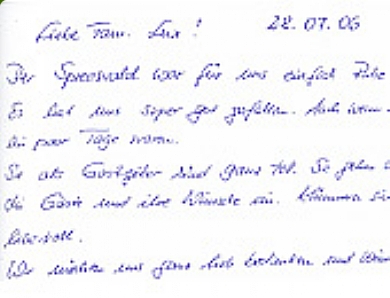 Liebe Fam. Lux! 28.07.06
Der Spreewald war für uns einfach
Es hat uns super gut gefallen. Auch wenn
ein paar Tage waren.
Sie als Gastgeber sind ganz toll. Sie gehen
die Gäste und ihre Wünsche ein. Kümmern
liebevoll.
Wir möchten uns ganz lieb bedanken und